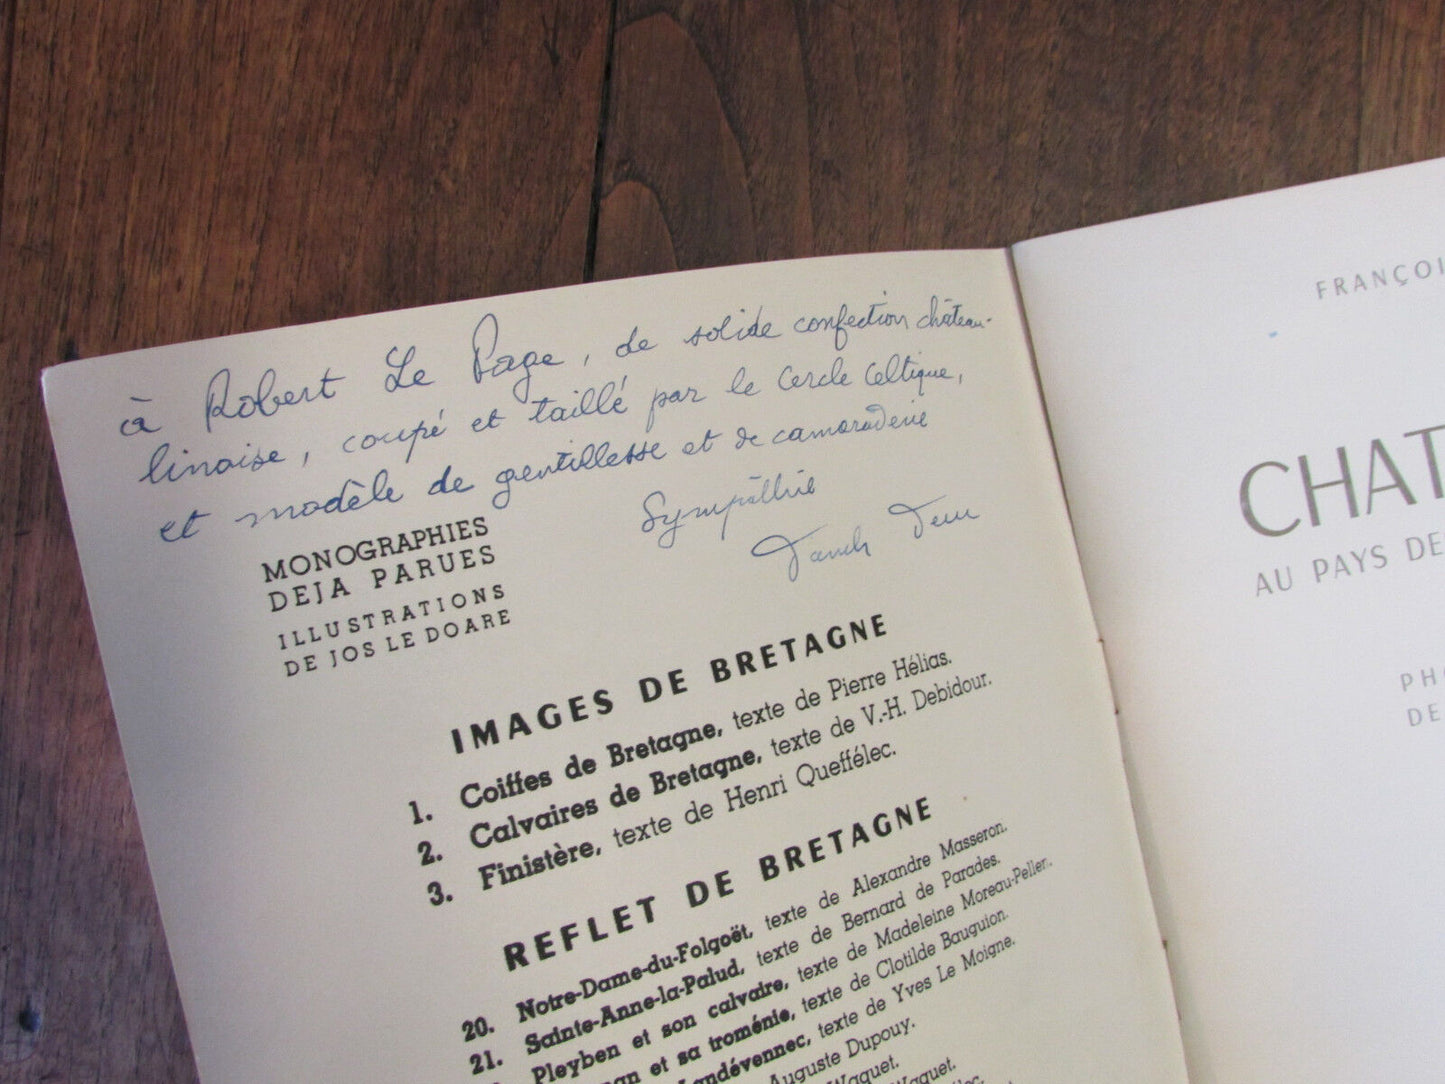 à Robert Le Page, de solide confection château-
linoise, coupé et taillé par le Cercle Celtique,
et modèle de gentillesse et de camaraderie
Sympathie
MONOGRAPHIES
DEJA PARUES
ILLUSTRATIONS
DE JOS LE DOARE
IMAGES DE BRETAGNE
1. Coiffes de Bretagne, texte de Pierre Hélias.
2. Calvaires de Bretagne, texte de V.-H. Debidour.
3. Finistère, texte de Henri Queffélec.
REFLET DE BRETAGNE
20. Notre-Dame-du-Folgoët, texte de Alexandre Masseron.
21. Sainte-Anne-la-Palud, texte de Bernard de Parades.
Pleyben et son calvaire, texte de Madeleine Moreau-Pellen.
et sa troménie, texte de Clotilde Bauguion.
andévennec, texte de Yves Le Moigne.
Auguste Dupouy.
Waquet.
Waquet.
FRANÇOI
CHAT
AU PAYS DE
PHO
DE